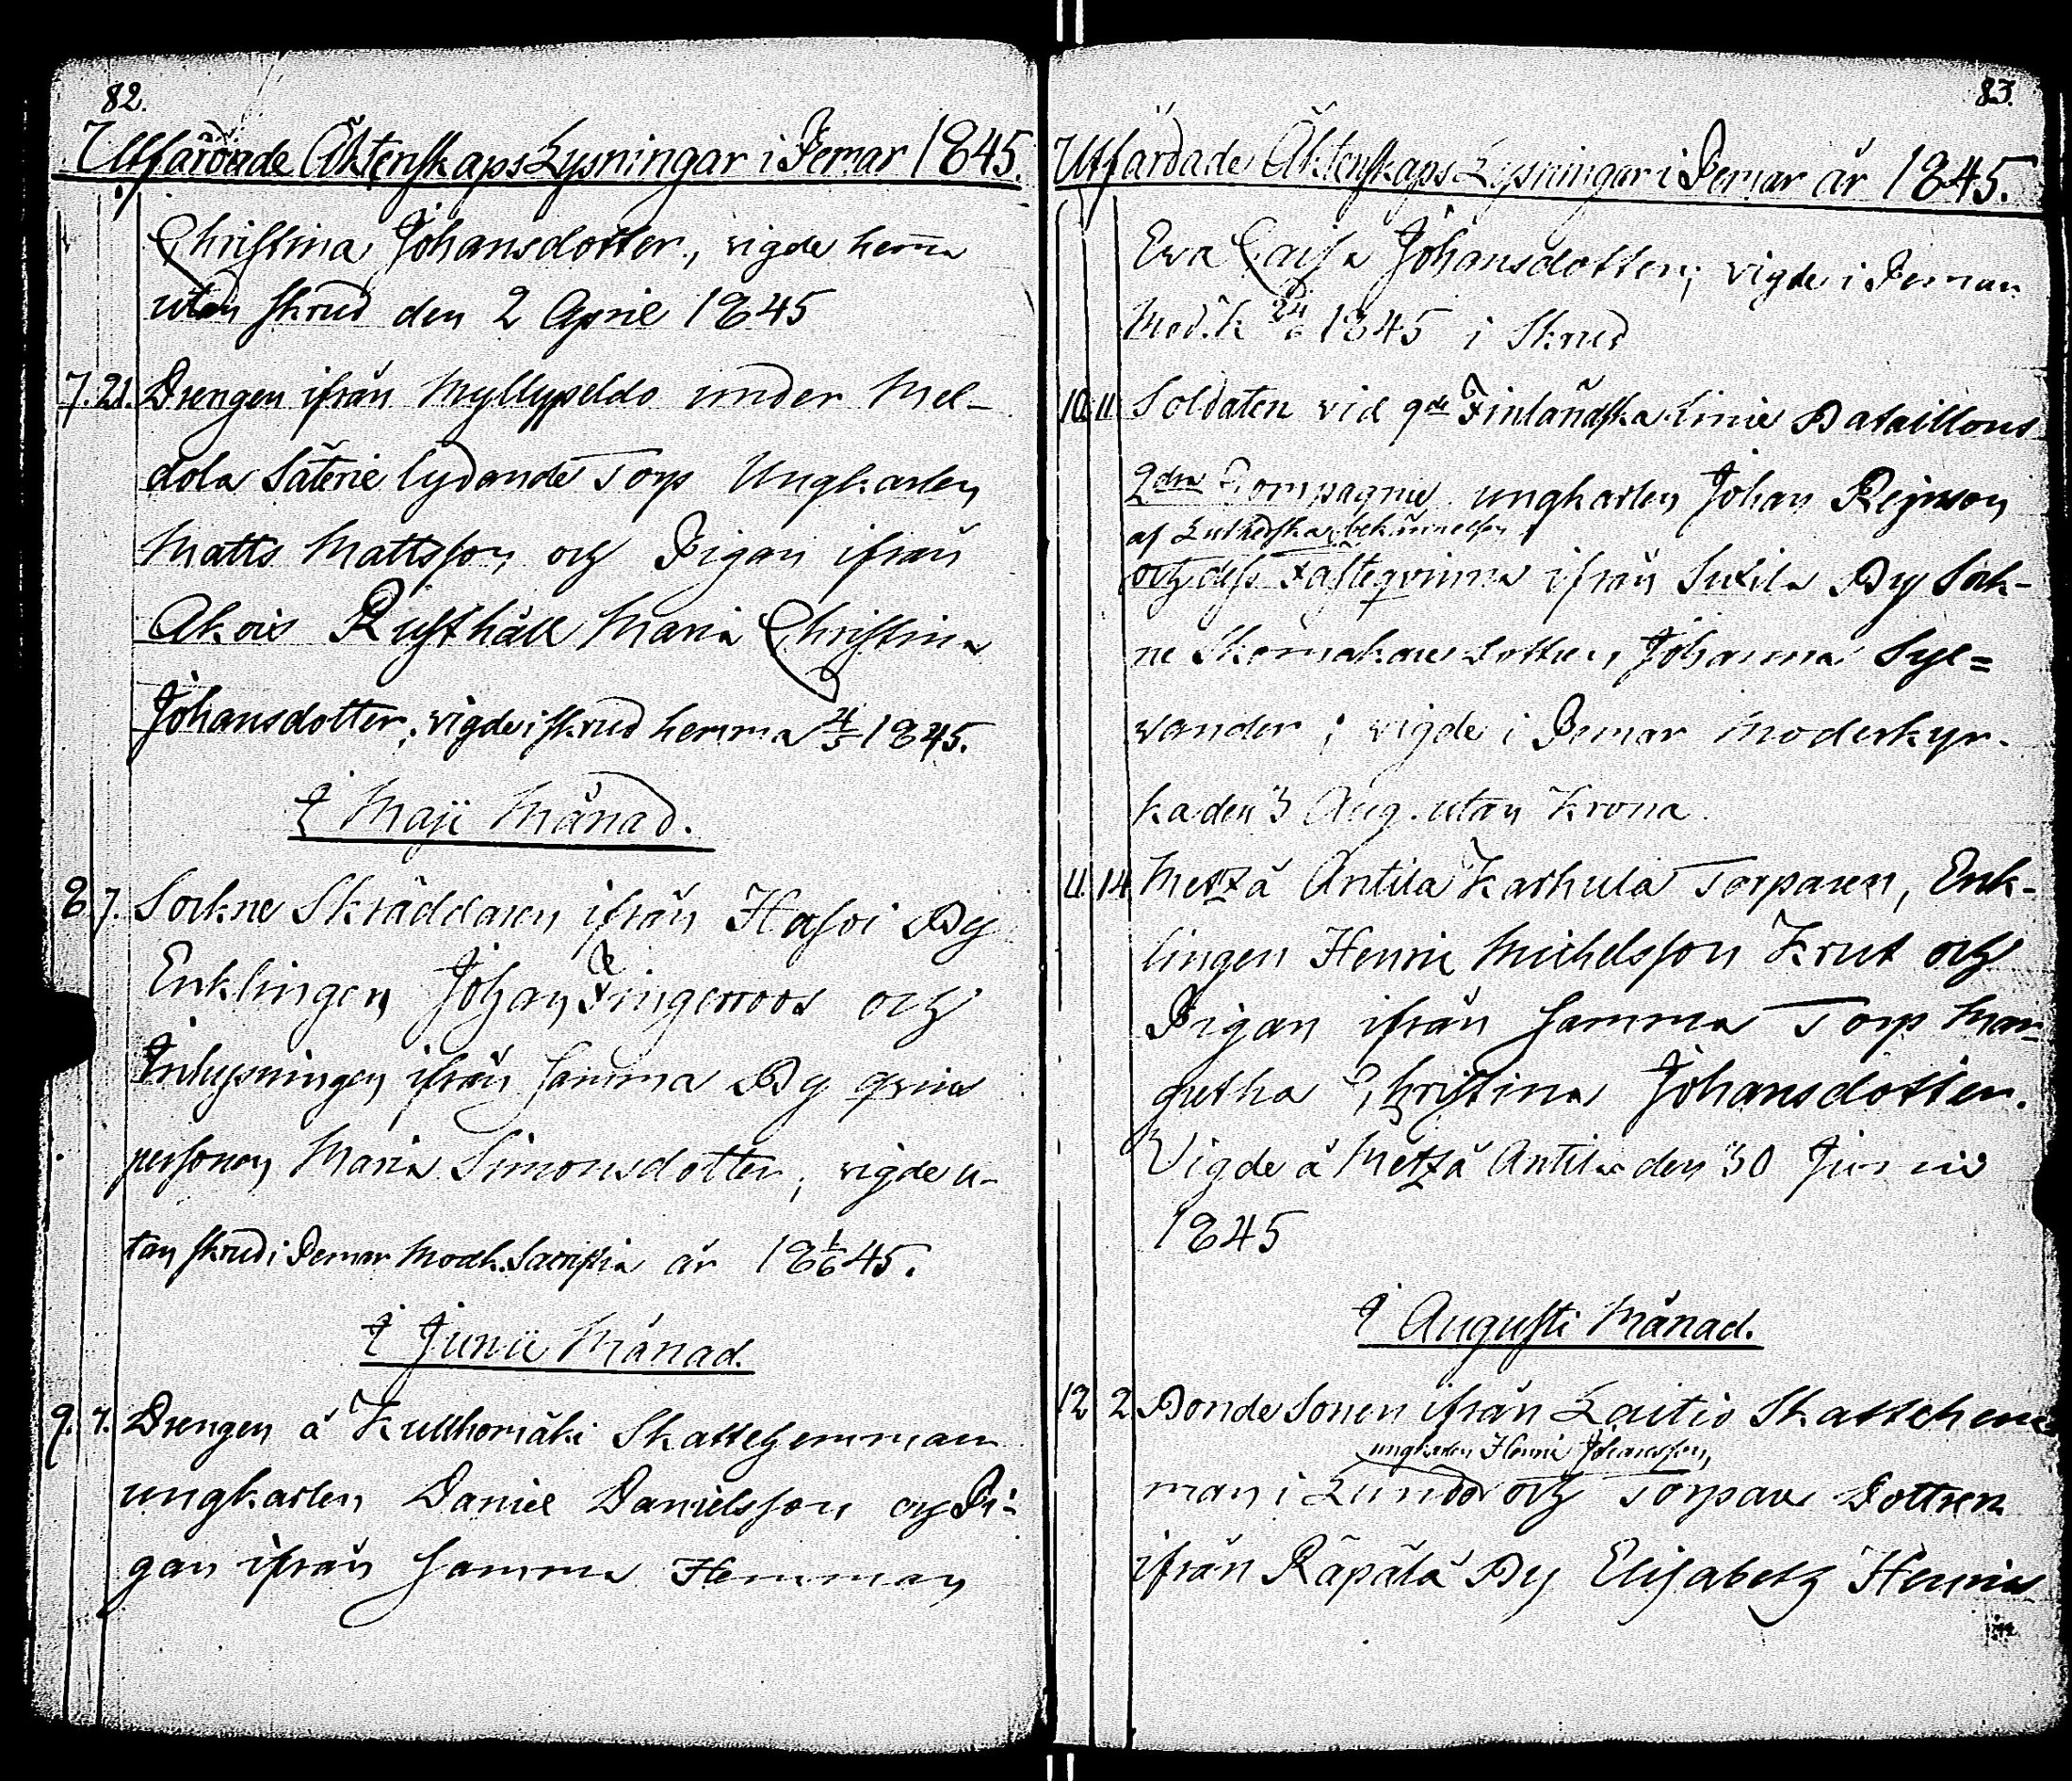 82.
Utfärdade Äktenskaps Lysningar i Pemar 1845.
Christina Johansdotter, vigde hem̄a
utan skrud den 2 April 1845
7. 21. Drengen ifrån Myllypeldo under Mel-
dola Säterie lydande Torp Ungkarlen
Matts Mattsson och Pigan ifrån
Akois Rusthåll Maria Christina
Johansdotter, vigde i skrud hemma 4/5 1845.
I Maji Månad.
8 7. Sockne Skräddaren ifrån Hasoi By
Enklingen Johan Fingerroos och
Inhysningen ifrån samma By qvins
personen Maria Simonsdotter, vigde u-
tan skrud i Pemar Modk. Sacristia år 18 1/6 45.
I Junii Månad.
9. 7. Drengen å Kullkomäki Skattehemman
ungkarlen Daniel Danielsson och Pi-
gan ifrån samma Hemman
83.
Utfärdade Äktenskaps Lysningar i Pemar år 1845.
Eva Caisa Johansdotter; vigde i Pemar
Mod. K 24/6 1845 i Skrud
10 11 Soldaten vid 9de Finländska Linie Bataillons
2dra Compagnie ungkarlen Johan Rejnson
af Lutherska bekännelsen
och dess Fästeqvinna ifrån Suxila By Sock-
ne Skomakare dottren Johanna Syl=
vander; vigde i Pemar Moderkyr-
ka den 3 Aug. utan Krona.
11. 14. Metzä Antila Karhula Torparen, Enk-
lingen Henric Michelsson Krut och
Pigan ifrån samma Torp Mar-
gretha Christina Johansdotter.
Vigde å Metzä Antila den 30 Junii
1845
I Augusti Månad.
12 2. Bonde Sonen ifrån Laitio Skattehem-
ungkarlen Henric Johansson,
man i Lundo och Torpare Dottren
ifrån Räpälä By Elisabeth Henrics